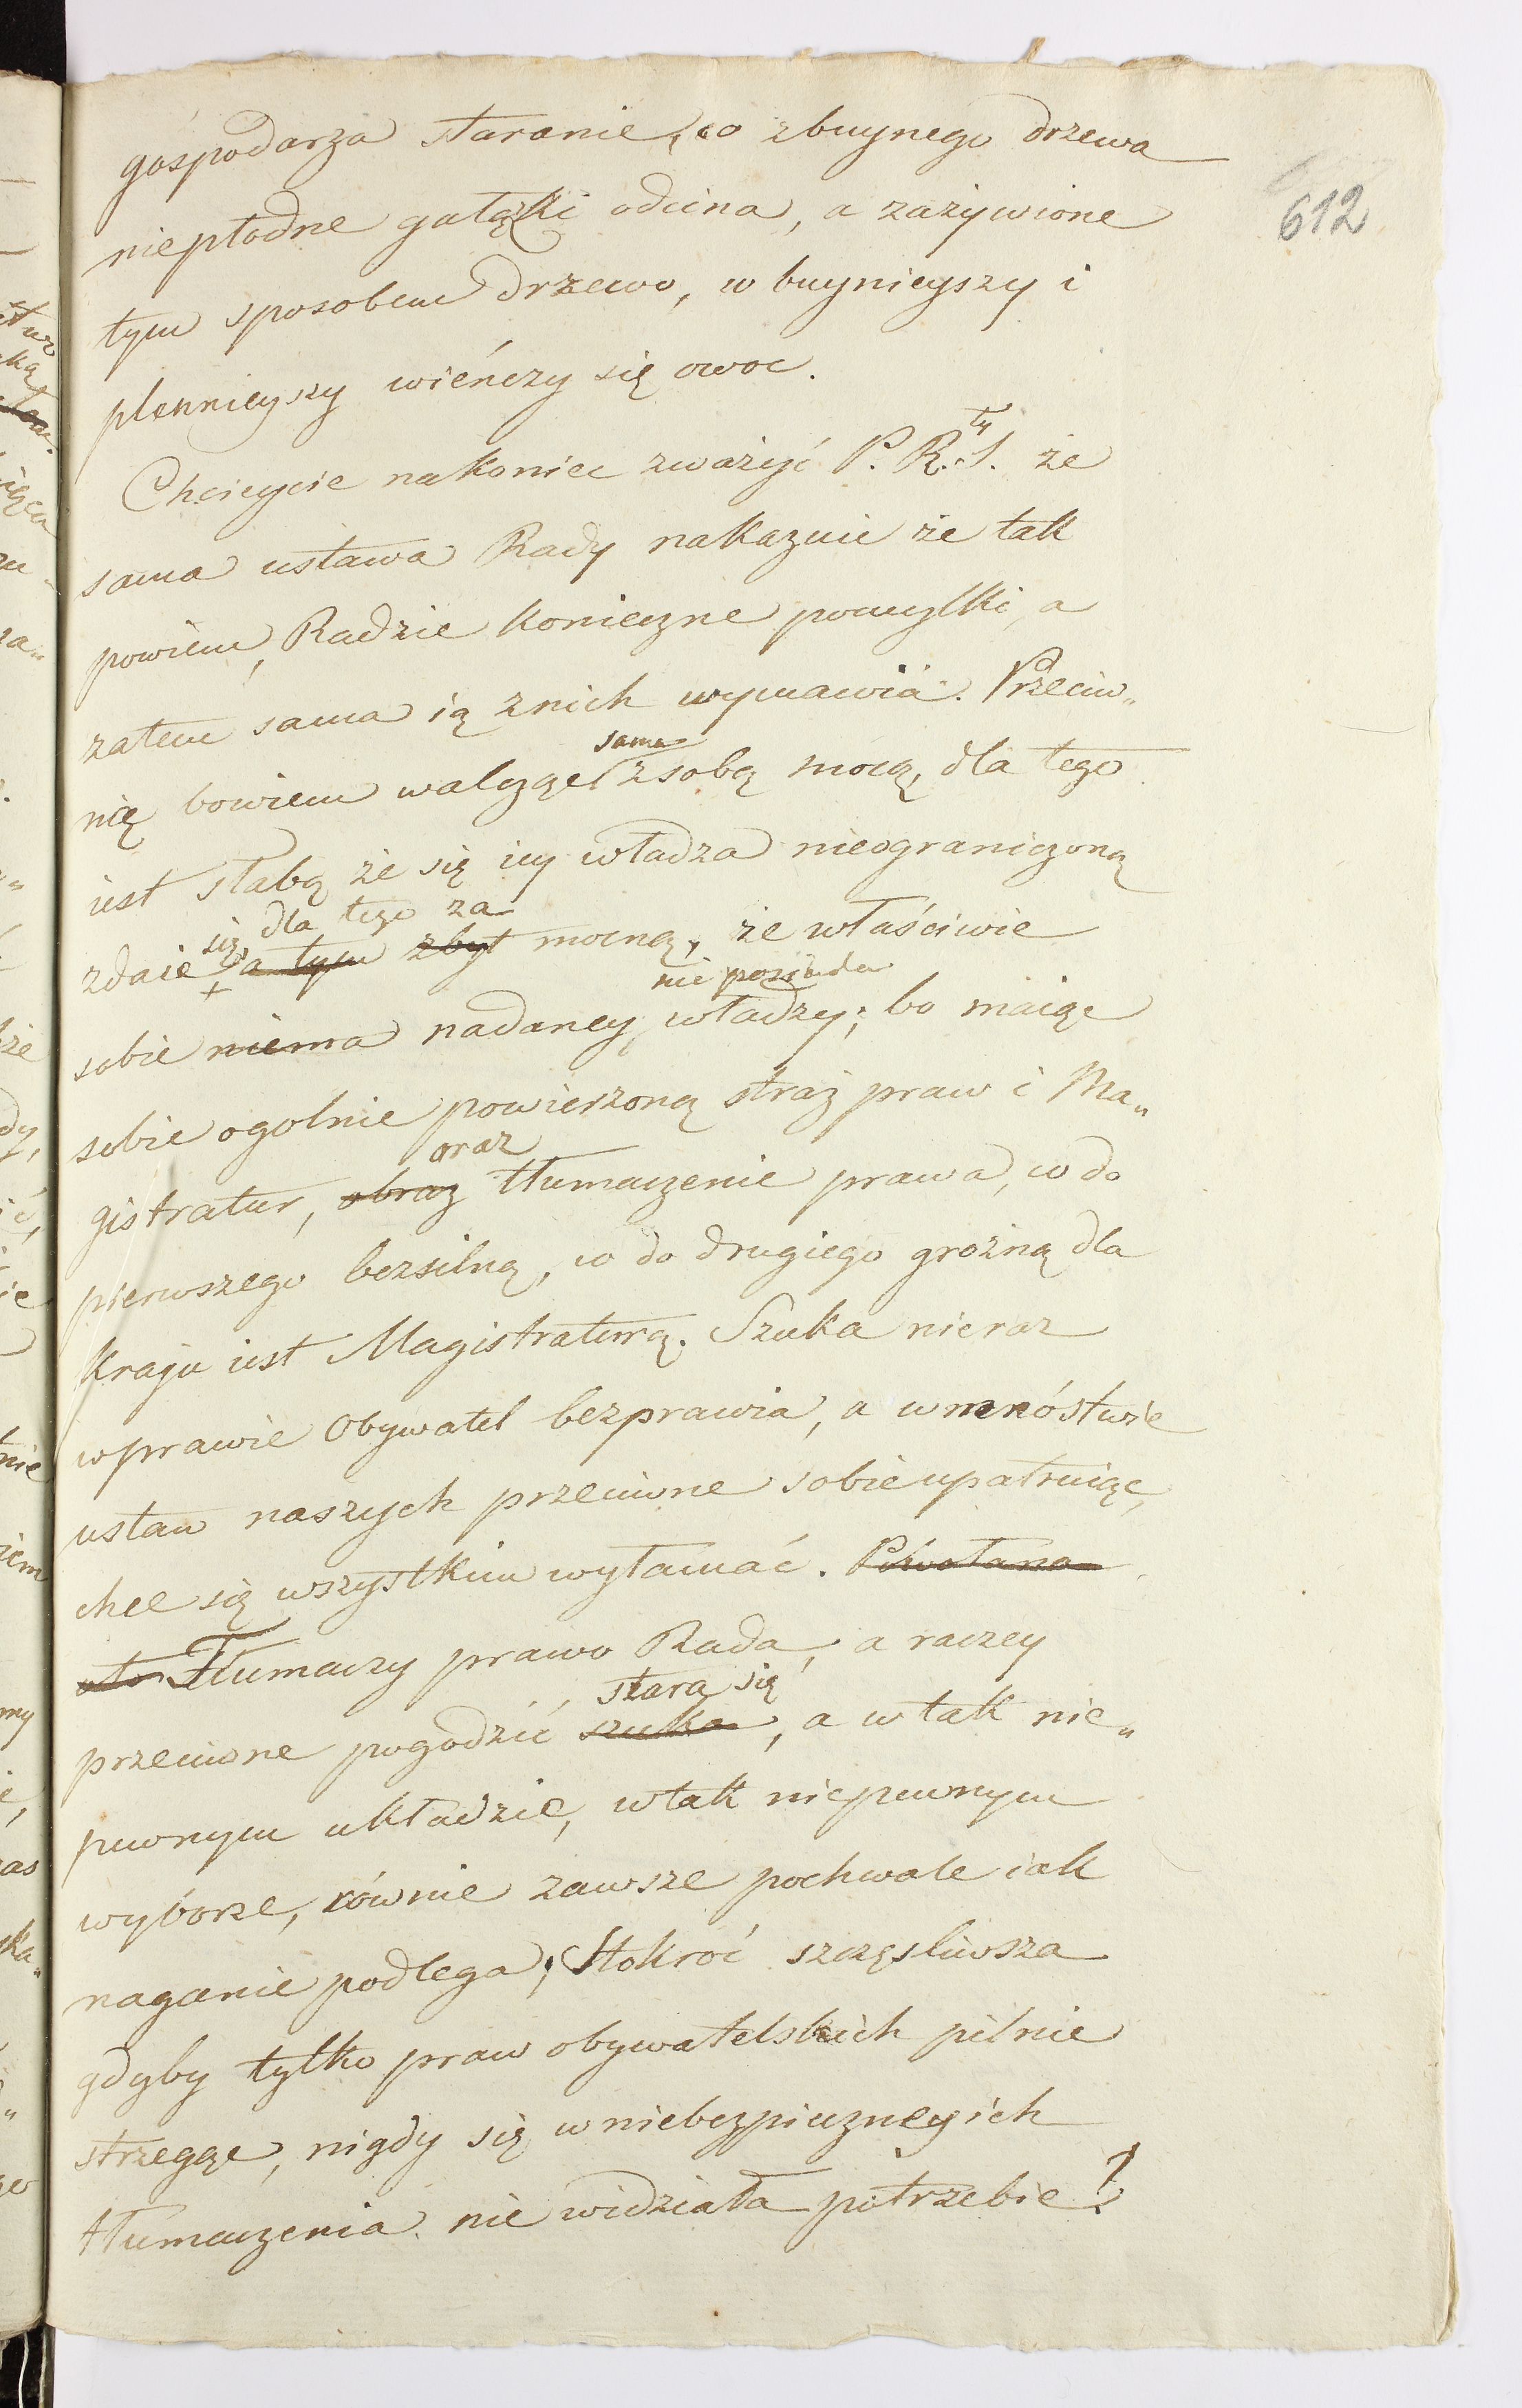 612
gospodarza staranie, co zbuynego drzewa
niepłodne gałązki odcina, a zażywione
tym sposobem drzewo, w buynieyszy i
plennieyszy wieńczy się owoc.
Chcieycie nakoniec zważyć P. R. ty S. że
sama ustawa Rady nakazuie że tak
powiem, Radzie konieczne pomyłki, a
zatem sama ią znich wymawia. Przeciw„
nię bowiem walcząc sama zsobą mocą, dla tego
iest słabą że się iey władza nieograniczoną
zdaie się, dla tego za a tym zbyt mocną, że właściwie
sobie niema nadaney nie posiada władzy; bo maiąc
sobie ogolnie powierzoną straż praw i Ma„
gistratur, obraz oraz tłumaczenie prawa, co do
pierwszego bezsilną, co do drugiego grożną dla
Kraju iest Magistraturą. Szuka nieraz
wprawie Obywatel bezprawia, a wmnóstwie
ustaw naszych przeciwne sobie upatruiąc,
chce się wszystkim wyłamać. Powołana
Tłumaczy prawo Rada, a raczey
przeciwne pogodzić szuka stara się, a wtak nie„
pewnym układzie, wtak niepewnym
wyborze, równie zawsze pochwale iak
naganie podlega; Stokroć szczęsliwsza
gdyby tylko praw obywatelskich pilnie
strzegąc, nigdy się wniebezpieczney ich
tłumaczenia nie widziała potrzebie?